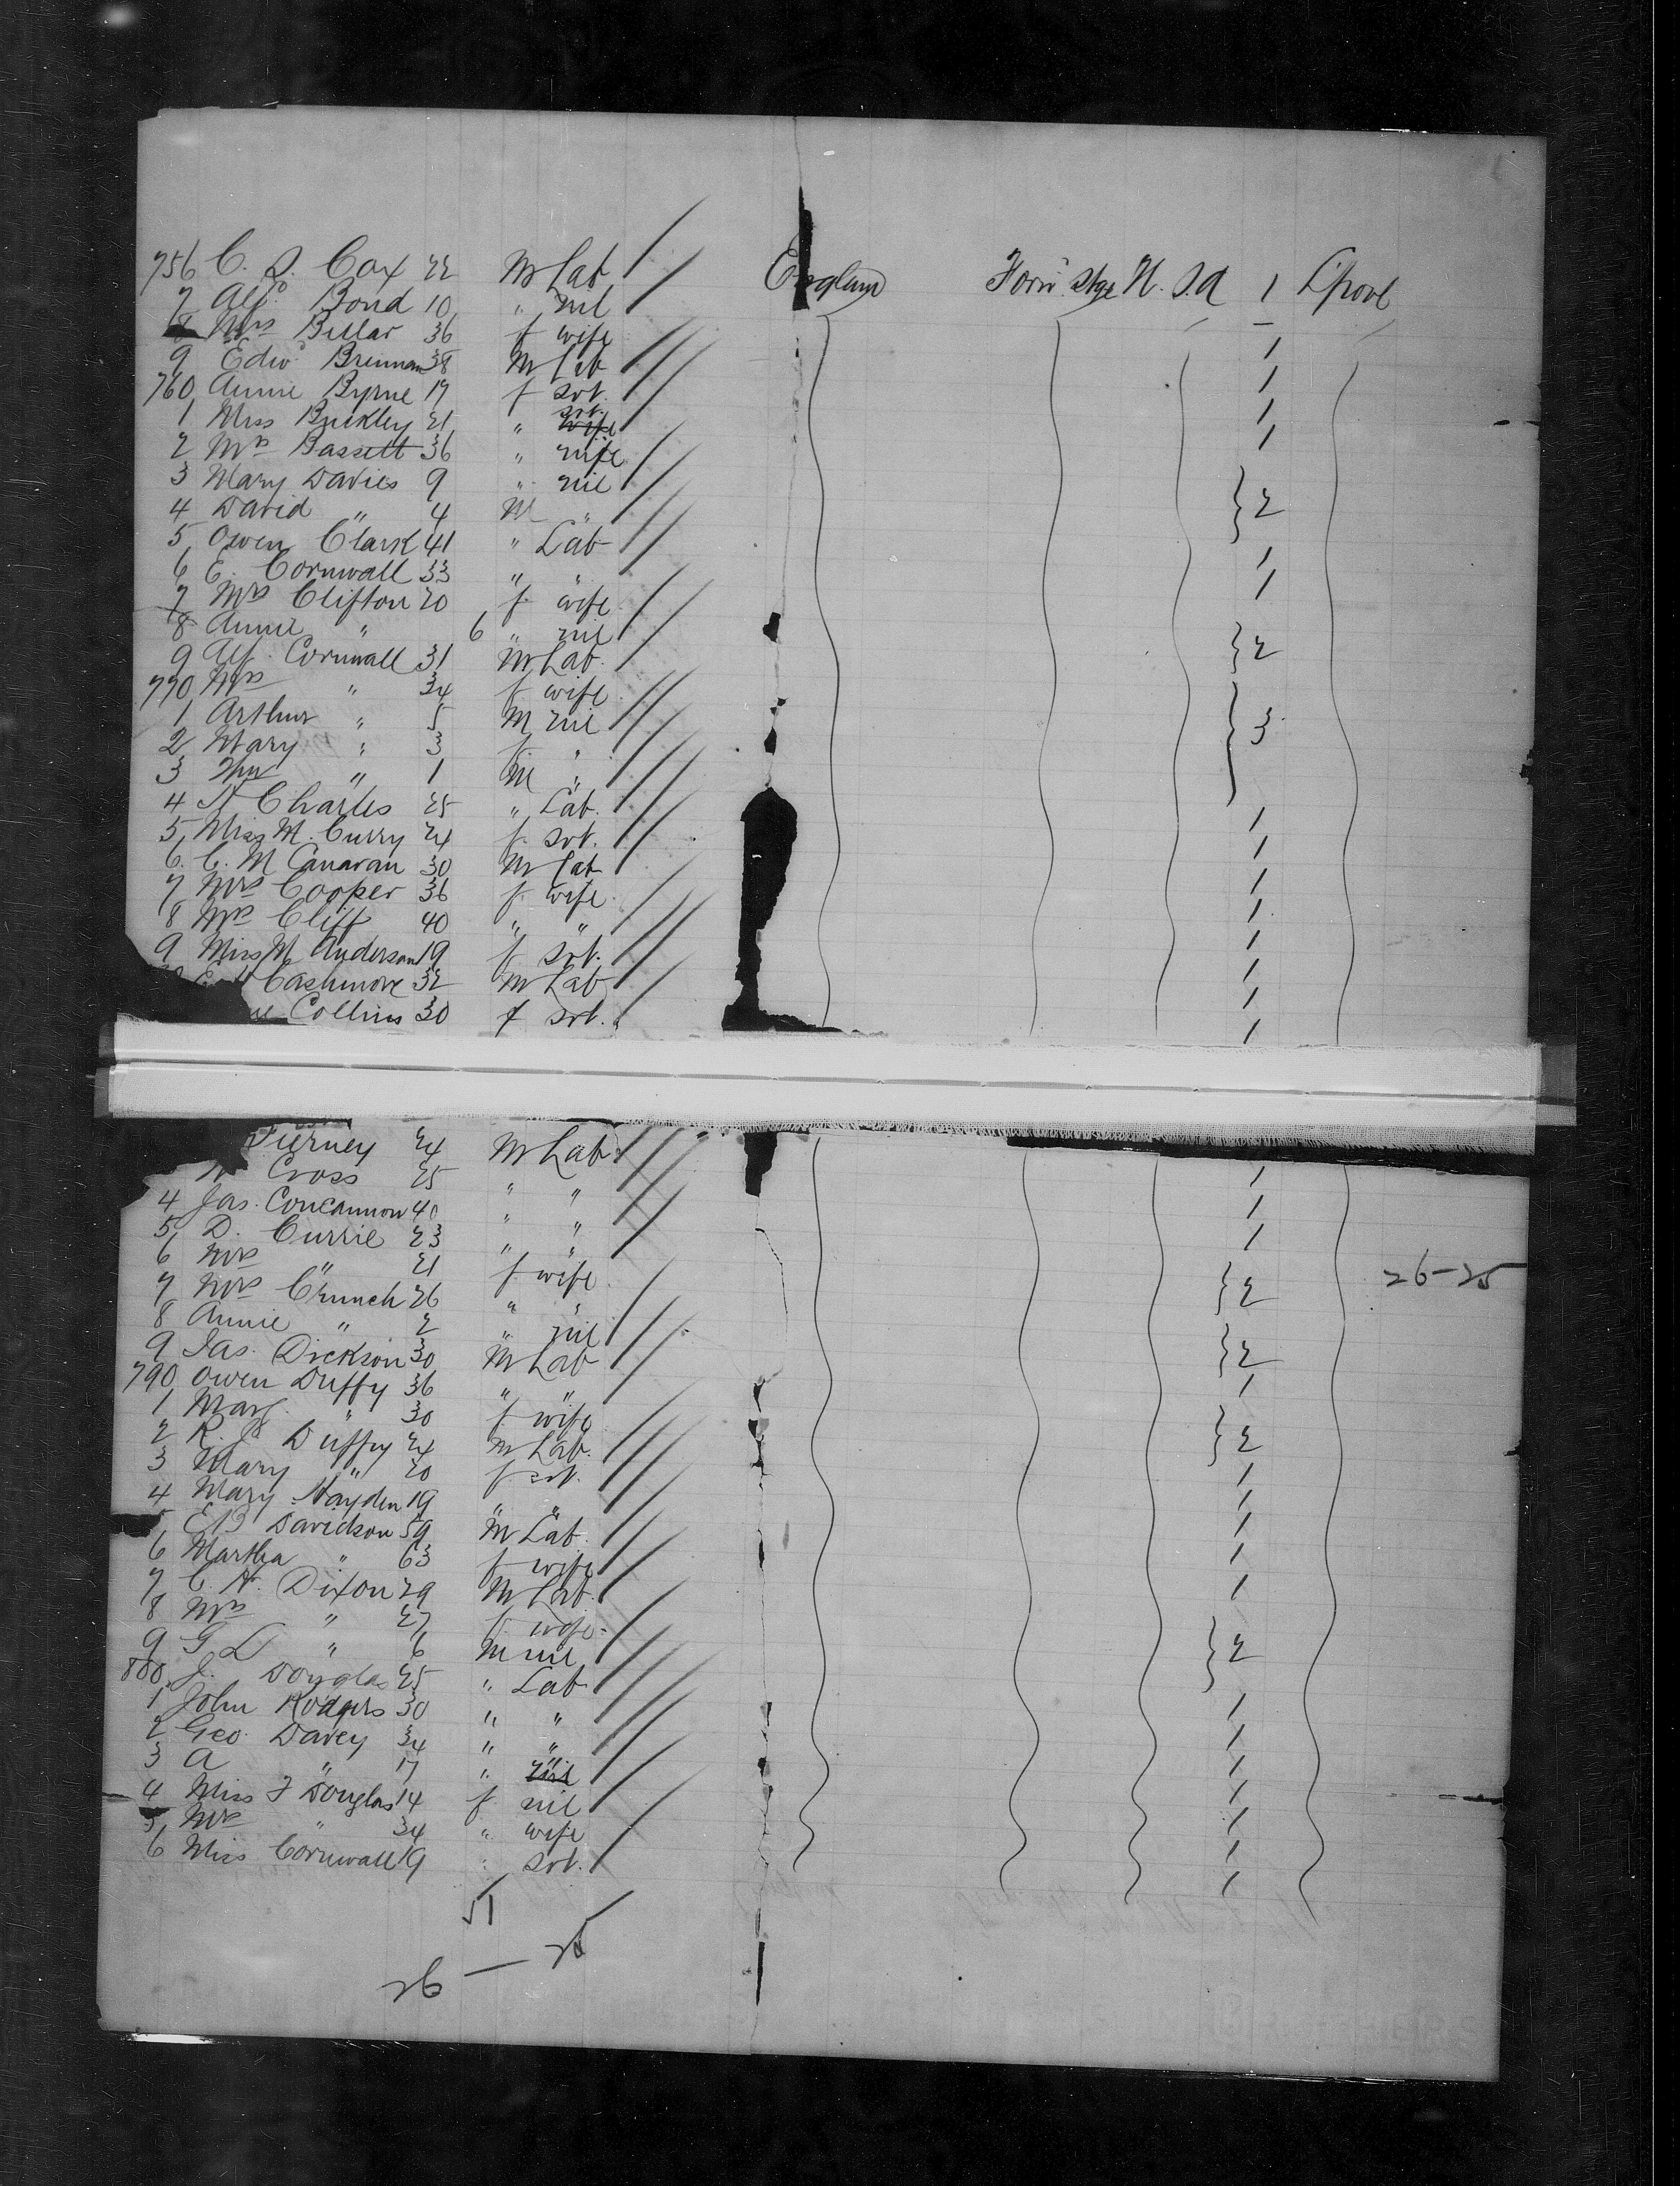 756 C. S. Cox 22 M Lab England Forw. Stge N. S. A 1 L'pool
7 Alf. Bond 10 " nil
8 Mrs Billar 36 f wife 1
9 Edw. Brennan 38 M Lab 1
760 Annie Byrne 19 f srt. 1
1 Miss Buckley 21 " srt. 1
2 Mrs Bassett 36 " wife
3 Mary Davies 9 " nil } 2
4 David " 4 M "
5 Owen Clark 41 " Lab 1
6 E. Cornwall 33 " " 1
7 Mrs Clifton 20 f wife } 2
8 Annie " 6 " nil
9 Alf. Cornwall 31 M Lab. } 3
770 Mrs " 34 f wife
1 Arthur " 5 M nil
2 Mary " 3 f "
3 Wm " 1 M "
4 H Charles 25 " Lab. 1
5 Miss M. Curry 24 f srt. 1
6 C. M Canavan 30 M Lab 1
7 Mrs Cooper 36 f wife 1
8 Mrs Cliff 40 " " 1
9 Miss M Anderson 19 f srt. 1
Cashmore 32 M Lab 1
Collins 30 f srt. 1
Tierney 24 M Lab 1
Cross 25 " " 1
4 Jas. Concannon 40 " " 1
5 D. Currie 23 " " } 2 26-25
6 Mrs " 21 f wife
7 Mrs Crunch 26 " " } 2
8 Annie " 2 " nil
9 Jas. Dickson 30 M Lab 1
790 Owen Duffy 36 " " } 2
1 Marg. " 30 f wife
2 R. J. Duffy 24 M Lab. 1
3 Mary " 20 f srt. 1
4 Mary Hayden 19 " " 1
5 E B Davidson 59 M Lab. 1
6 Martha " 63 f wife 1
7 C. H. Dixon 29 M Lab. } 2
8 Mrs " 27 f wife
9 G L " 6 M nil
800 J. Douglas 25 " Lab 1
1 John Rodgers 30 " " 1
2 Geo. Davey 34 " " 1
3 A " 17 " nil 1
4 Miss F Douglas 14 f nil 1
5 Mrs " 34 " wife 1
6 Miss Cornwall 19 " srt. 1
51
26 — 25